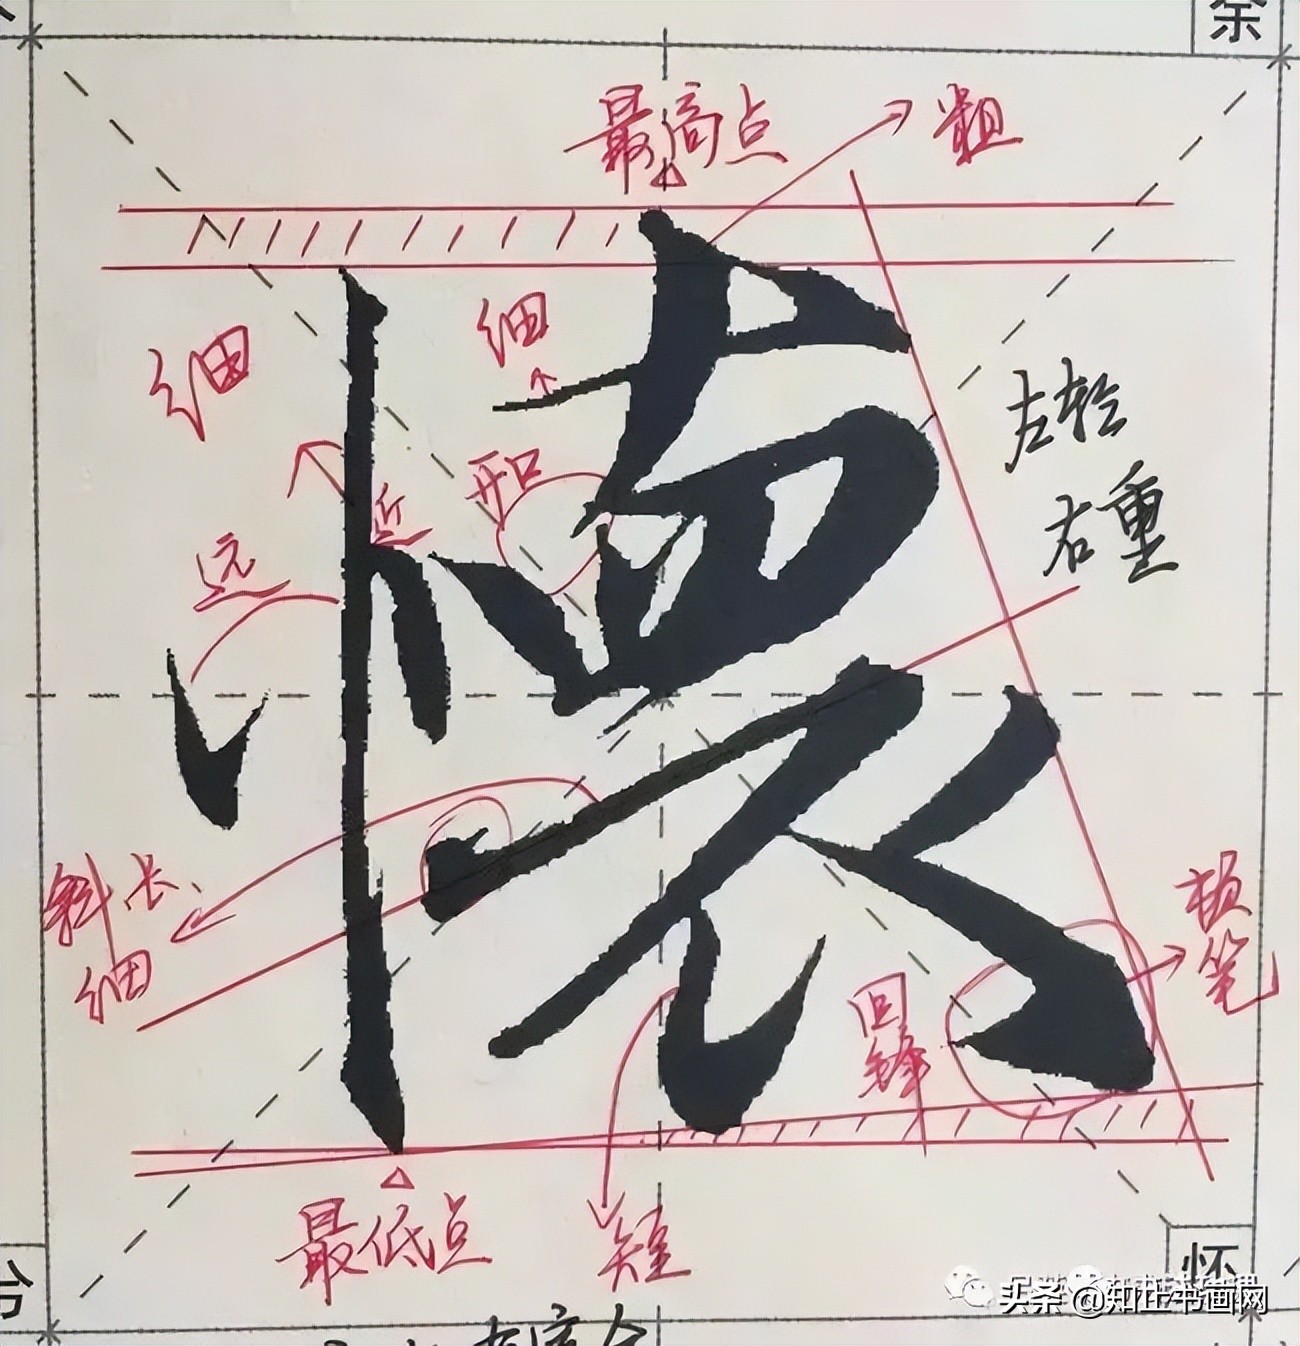 余
最高点
粗
细
细
左轻
右重
开口
近
远
懷
斜长
细
顿笔
回锋
最低点
短
怀
头条 @知止书画网